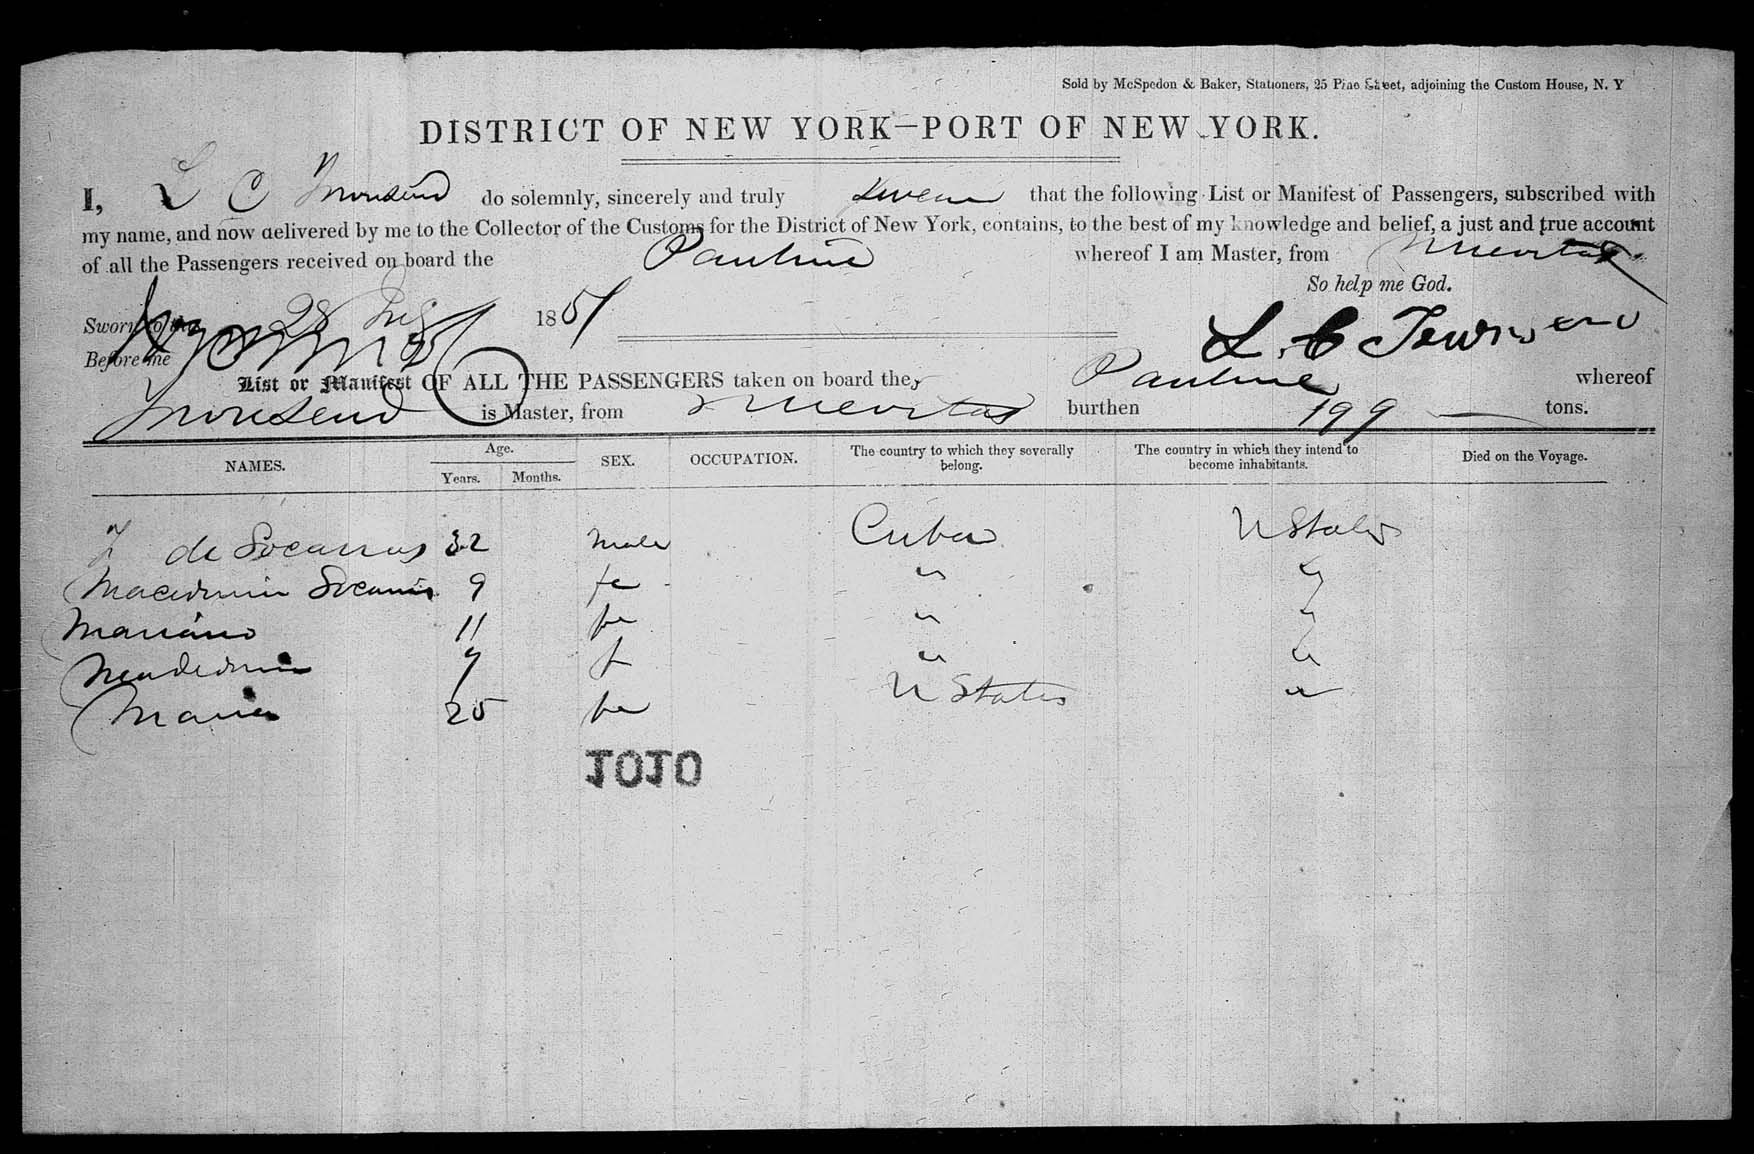 Sold by McSpedon & Baker, Stationers, 25 Pine Street, adjoining the Custom House, N. Y
DISTRICT OF NEW YORK—PORT OF NEW YORK.
I, L C Townsend do solemnly, sincerely and truly swear that the following List or Manifest of Passengers, subscribed with
my name, and now delivered by me to the Collector of the Customs for the District of New York, contains, to the best of my knowledge and belief, a just and true account
of all the Passengers received on board the Pauline whereof I am Master, from Nuevitas
So help me God.
Sworn to the 28 1851
L. C Townsend
Before me
List or Manifest OF ALL THE PASSENGERS taken on board the Pauline whereof
Townsend is Master, from Nuevitas burthen 199 tons.
NAMES. Age. Years. Months. SEX. OCCUPATION. The country to which they severally belong. The country in which they intend to become inhabitants. Died on the Voyage.
de Socarras 32 Male Cuba U States
Socarras 9 fe " "
Mariano 11 fe " "
7 f " "
Maria 25 fe U States "
1010